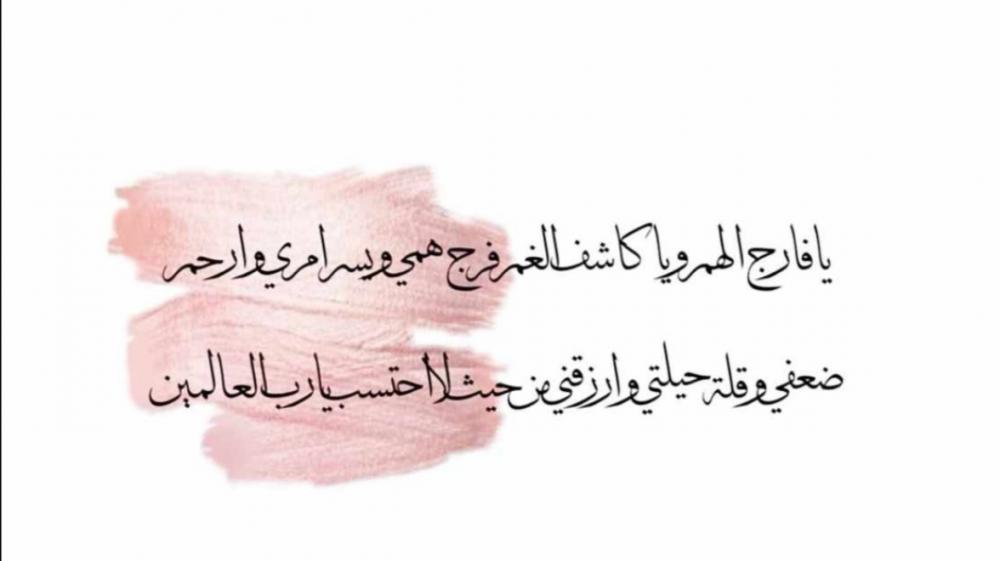 يا فارج الهم ويا كاشف الغم فرج همي ويسر امري وارحم
ضعفي وقلة حيلتي وارزقني من حيث لا احتسب يا رب العالمين